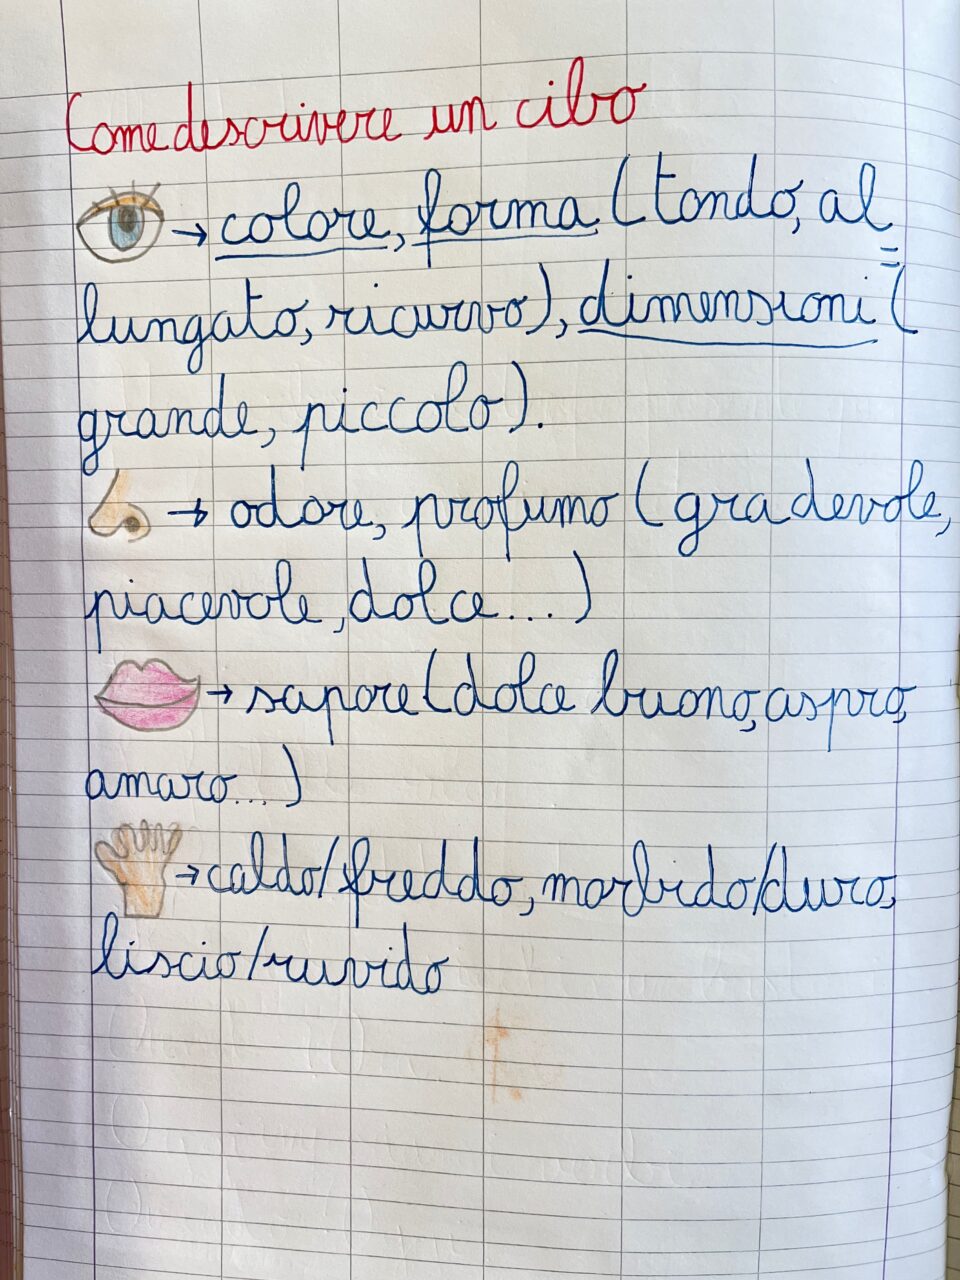 Come descrivere un cibo
→ colore, forma (tondo, al
lungato, ricurvo), dimensioni (
grande, piccolo).
→ odore, profumo (gradevole,
piacevole, dolce...)
→ sapore (dolce buono, aspro,
amaro...)
→ caldo/freddo, morbido/duro,
liscio/ruvido